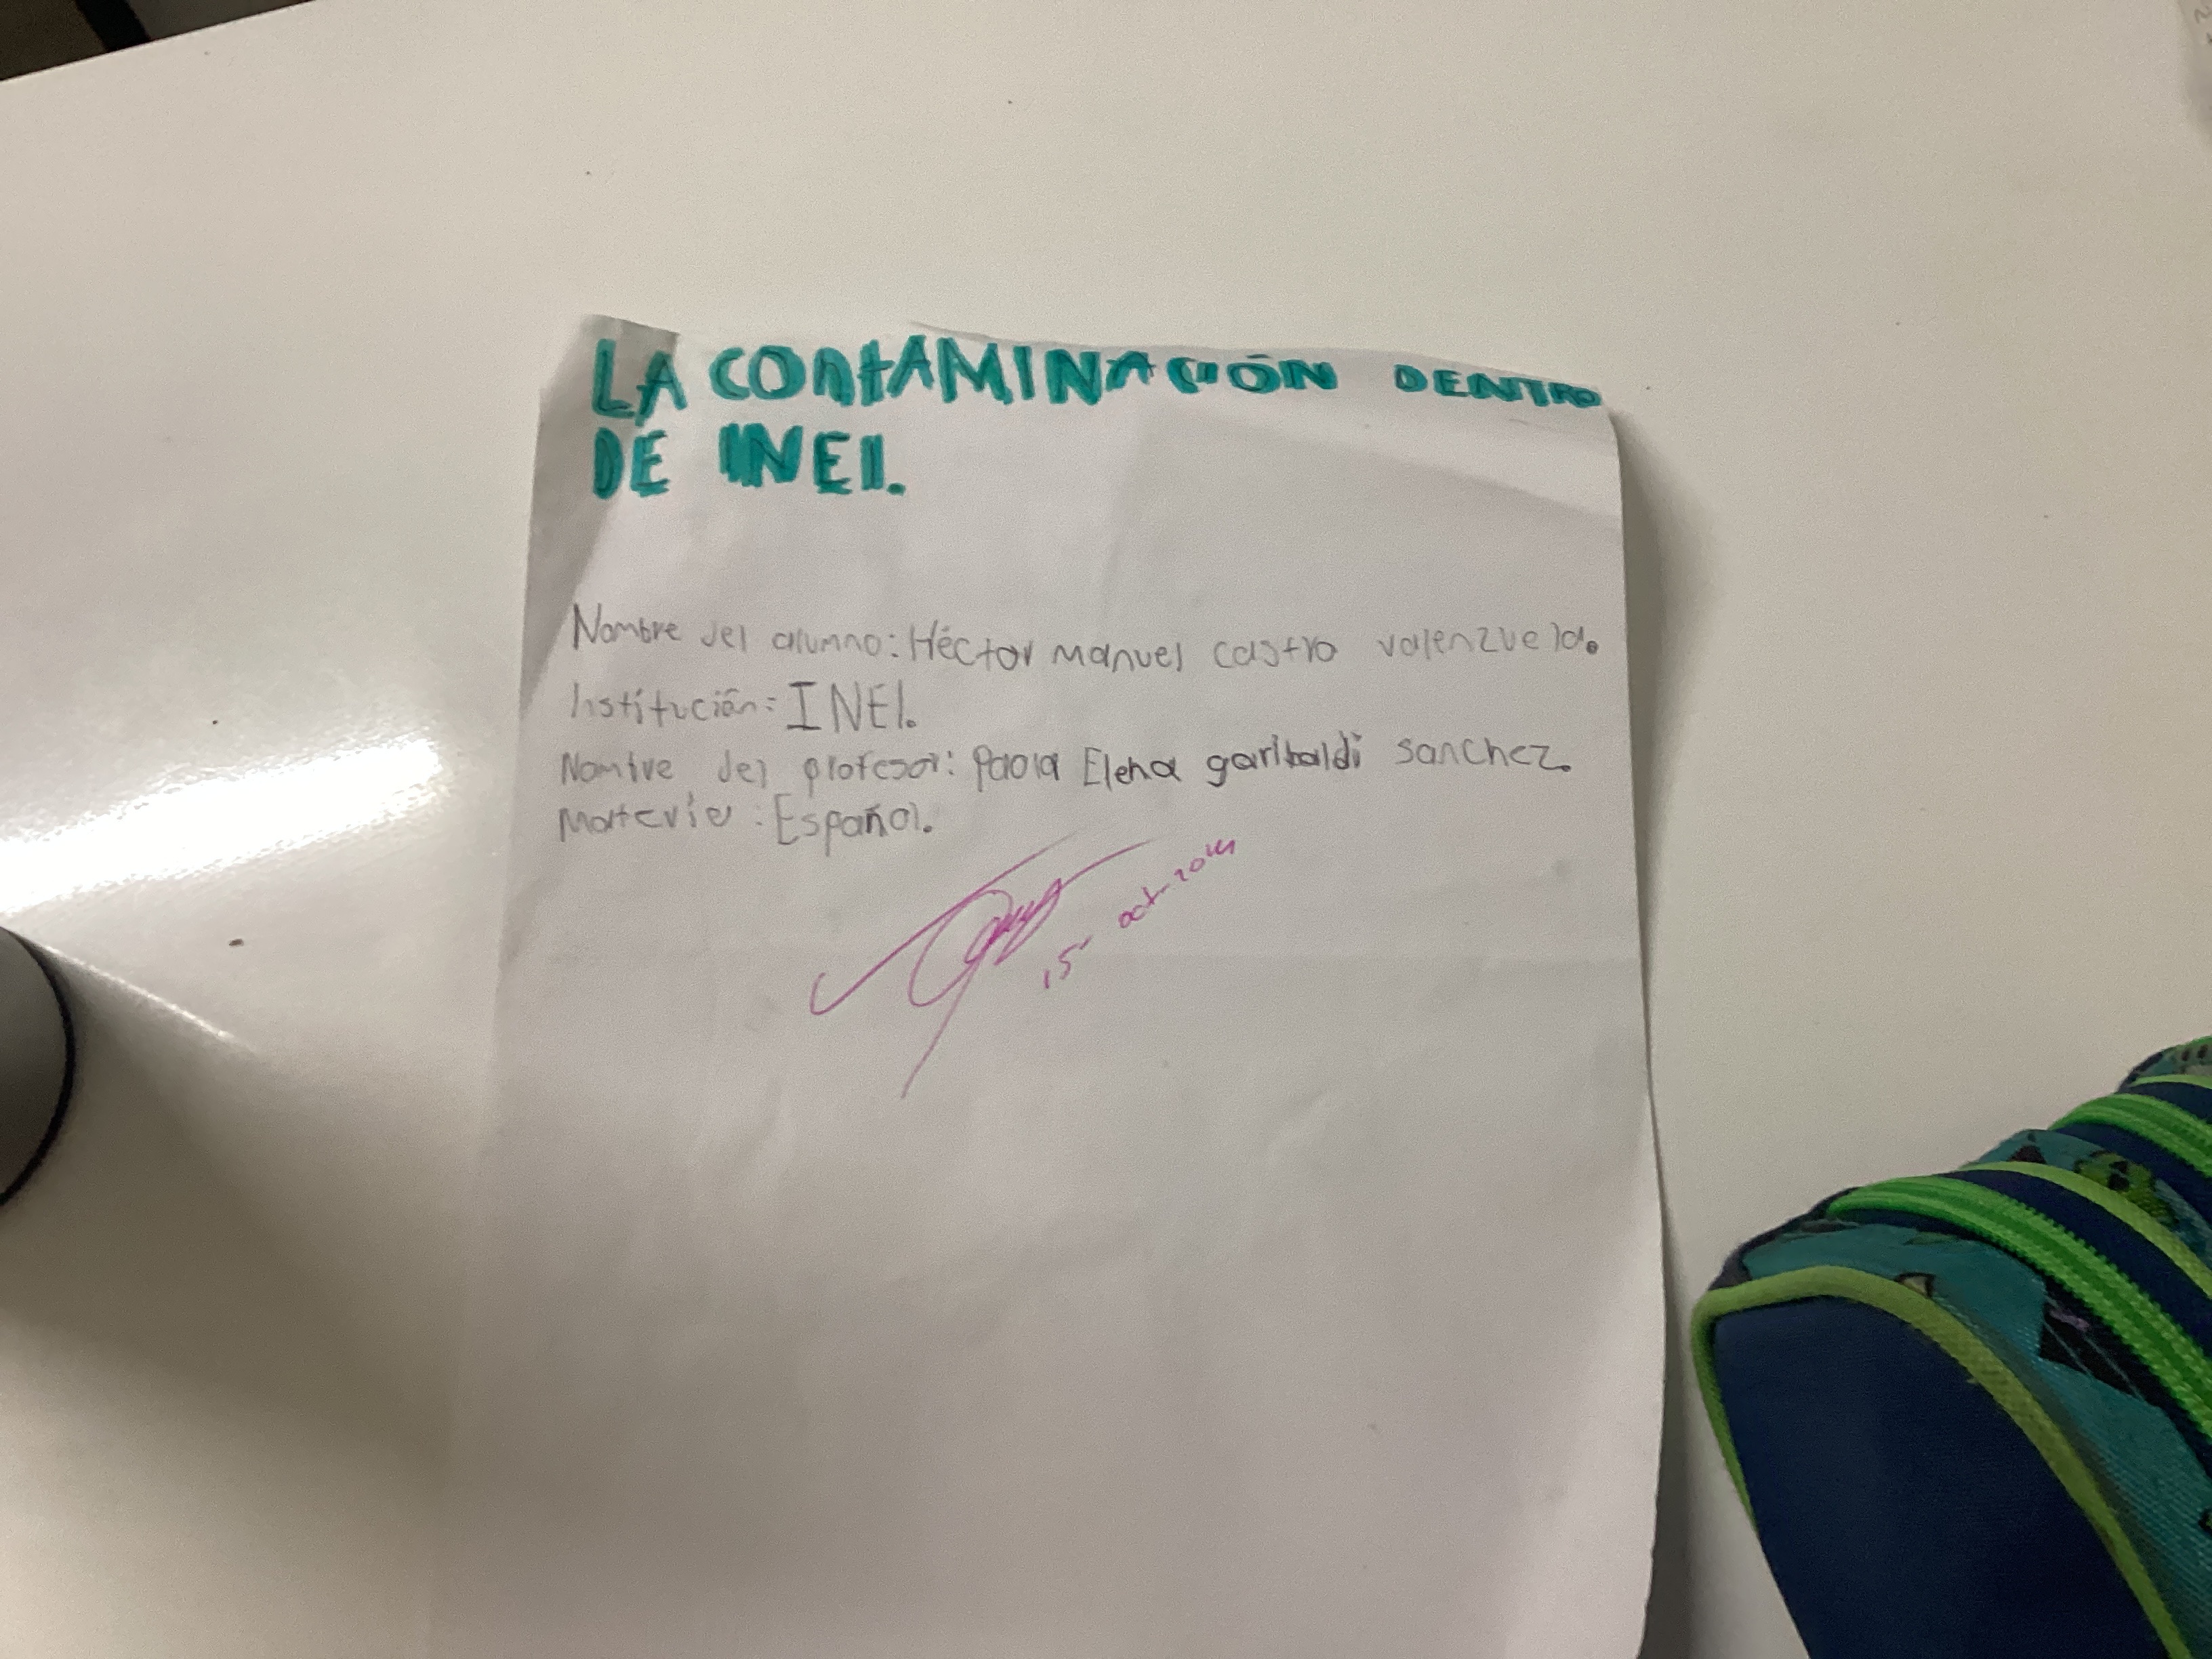 LA CONtAMINACIÓN DENTRO
DE INEI.
Nombre del alumno: Héctor manuel castro valenzuela.
Institución: INEI.
Nombre del profesor: paola Elena garibaldi sanchez.
Materia: Español.
15- oct-20